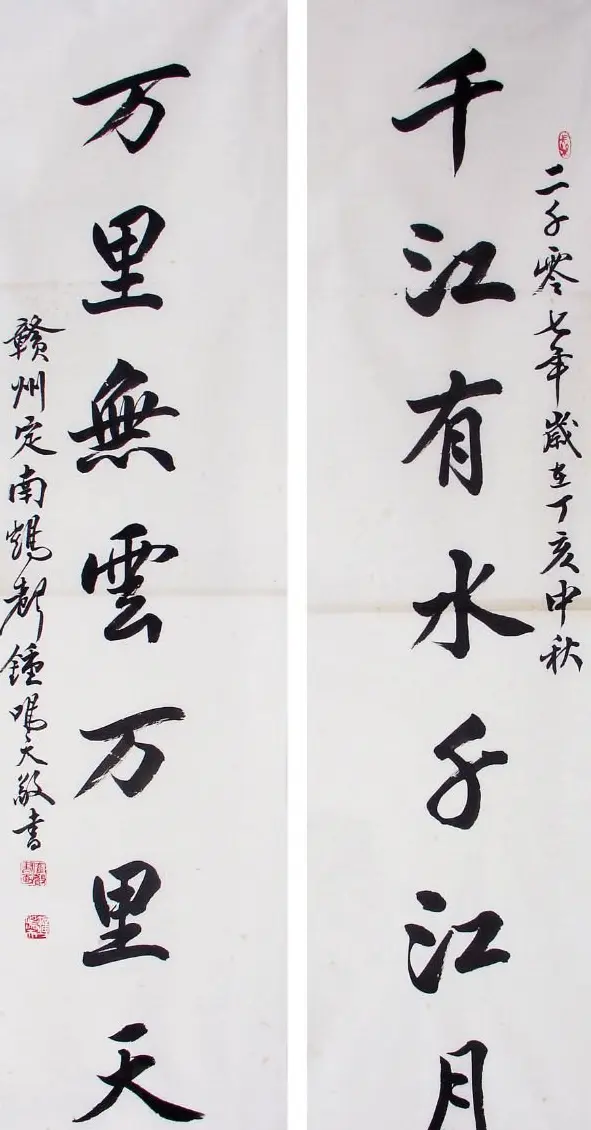 二千零七年歲在丁亥中秋
千江有水千江月
万里無雲万里天
贛州定南鍾鳴天敬書